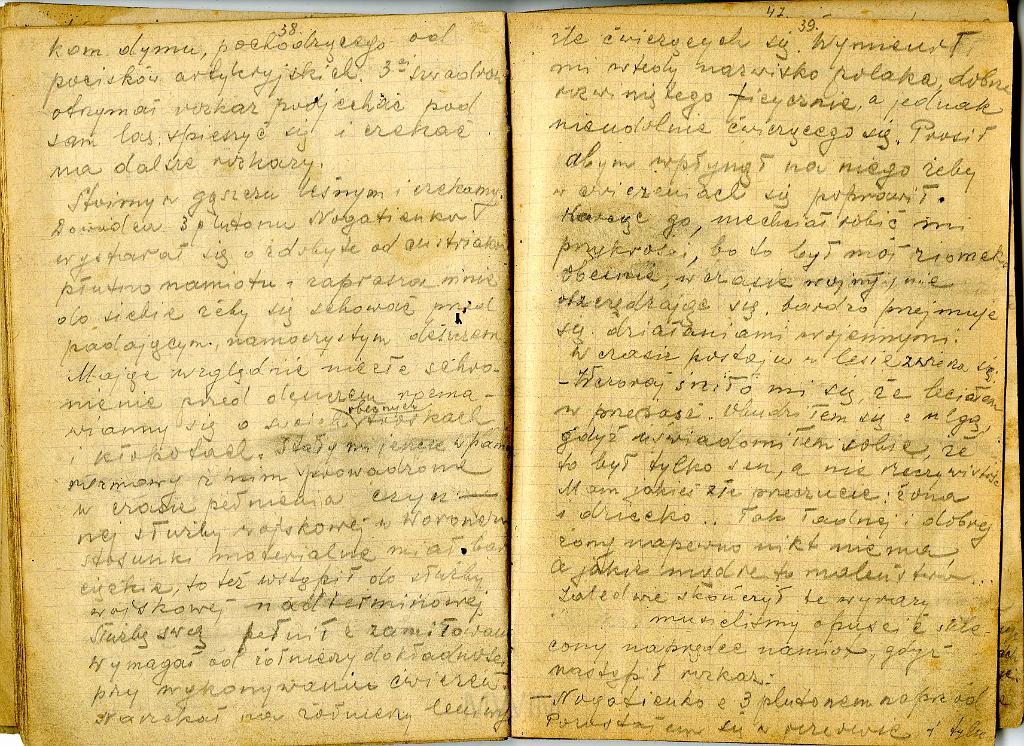 38.
kom dymu, pochodzącego od
pocisków artyleryjskich. 3ci szwadron
otrzymał rozkaz podjechać pod
sam las, spieszyć się i czekać
na dalsze rozkazy.
Stoimy w gąszczu leśnym i czekamy.
Dowódca 3 plutonu Nogatienko
wystarał się o zdobyte od austriaków
płutno namiotu i zaprasza mnie
do siebie żeby się schować przed
padającym, namoczystym deszczem
Mając względnie niezłe schro-
nienie przed deszczem rozma-
wiamy się o swoich obecnych troskach
i kłopotach. Stały mi jeszcze w pam
rozmowy z nim prowadzone
w czasie pełnienia czyn-
nej służby wojskowej w Woroneżu
Stosunki materialne miał bar
ciężkie, to też wstąpił do służby
wojskowej nadterminowej
Służbę swą pełnił z zamiłowan
Wymagał od żółnierzy dokładności
przy wykonywaniu ćwiczeń.
Narzekał na żółnierzy
47.
39.
źle ćwiczących się. Wymienił
mi wtedy nazwisko polaka, dobrze
rozwiniętego fizycznie, a jednak
nieudolnie ćwiczącego się. Prosił
abym wpłynął na niego żeby
w ćwiczeniach się poprawił.
Karząc go, niechciał robić mi
przykrości, bo to był mój ziomek
Obecnie, w czasie wojny, nie
oszczędzając się, bardzo przejmuje
się działaniami wojennymi.
W czasie postoju w lesie zwierza się:
– Wczoraj śniło mi się, że leciałem
w przepaść. Obudziłem się z ulgą,
gdyż uświadomiłem sobie, że
to był tylko sen, a nie rzeczywistość
Mam jakieś złe przeczucie: żona
i dziecko.. Tak ładnej i dobrej
żony napewno nikt niema
A jakie mądre to maleństwo...
Zaledwie skończył te wyrazy
musieliśmy opuścić skle-
cony naprędce namiot, gdyż
nastąpił rozkaz:
Nogatienko z 3 plutonem naprzód
Pozostajem się w rezerwie